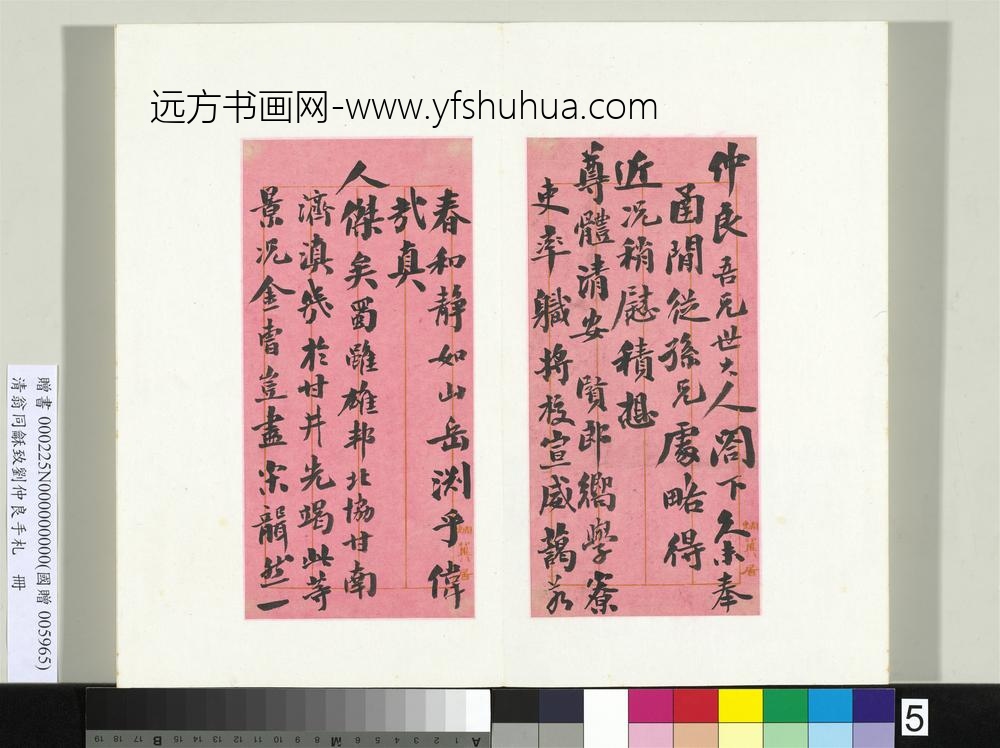 远方书画网-www.yfshuhua.com
仲良吾兄世大人閤下久未奉
函閒從孫兄處略得
近況稍慰積想
尊體清安賢郎嚮學寮
吏率職將校宣威藹若
春和靜如山岳渊乎偉
哉真
人傑矣蜀雖雄邦北協甘南
濟滇幾於甘井先竭此等
景況金曹豈盡宋聾然一
贈書 000225N000000000(國贈 005965)
清翁同龢致劉仲良手札 冊
5